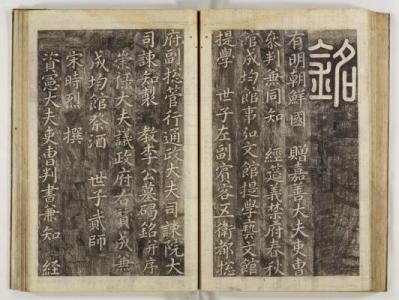 銘
有明朝鮮國 贈嘉善大夫吏曹
參判兼同知 經筵義禁府春秋
館成均館事弘文館提學藝文館
提學 世子左副賓客五衛都摠
府副摠管行通政大夫司諫院大
司諫知製 教李公墓碣銘并序
崇祿大夫議政府右贊成兼
成均館祭酒 世子貳師
宋時烈 撰
資憲大夫吏曹判書兼知 經